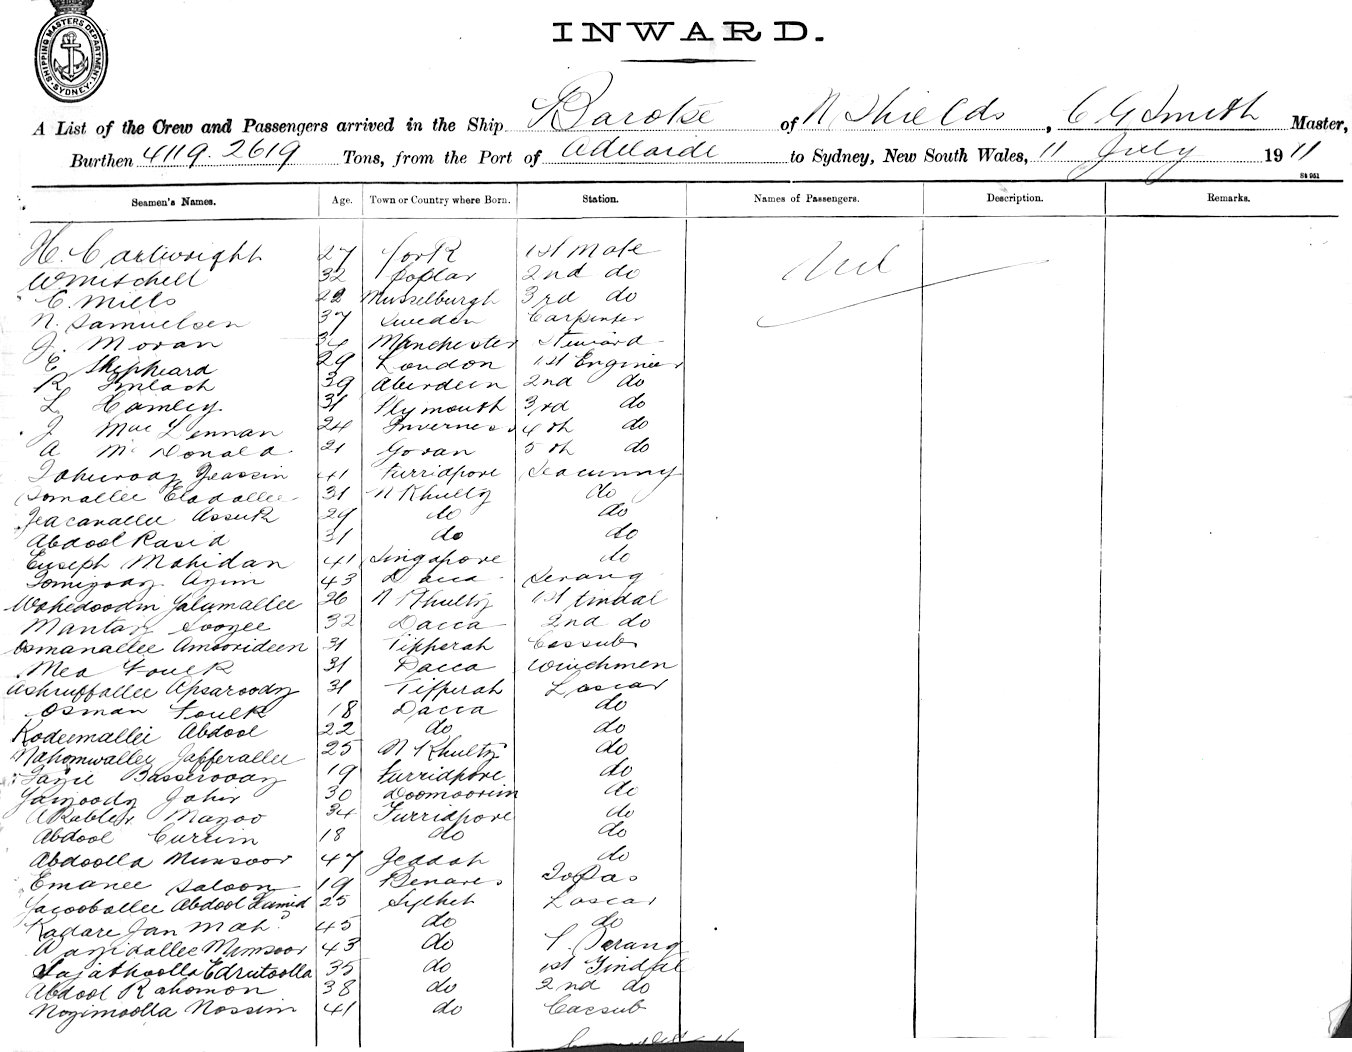 SHIPPING MASTERS DEPARTMENT. SYDNEY.
INWARD.
A List of the Crew and Passengers arrived in the Ship Baroke of N Shields, C G Smith Master,
Burthen 4119. 2619 Tons, from the Port of Adelaide to Sydney, New South Wales, 11 July 1911
St 951
Seamen's Names. Age. Town or Country where Born. Station. Names of Passengers. Description. Remarks.
H. Cartwright 27 York 1st Mate
W Mitchell 32 Poplar 2nd do
C. Mills 22 Musselburgh 3rd do
N. Samuelsen 37 Sweden Carpenter
J. Moran 34 Manchester Steward
E Sheppeard 29 London 1st Engineer
R Finlach 39 Aberdeen 2nd do
L Hamley. 31 Plymouth 3rd do
J Mac Lennan 24 Inverness 4th do
A McDonald 21 Govan 5th do
41 Furridpore Seacunny
Somallee Eladallee 31 N Khulty do
Jeacanallee Assuk 29 do do
Abdool Rasid 31 do do
Euseph Mohidan 41 Singapore do
Azim 43 Dacca Serang
Wohedoodin Jalumallee 36 N Khulty 1st tindal
Mantaz 32 Dacca 2nd do
Osmanallee Amoorideen 31 Tipperah Cassub
Mea Foulk 31 Dacca Winchmen
Ashruffallee Apsaroody 31 Tipperah Lascar
Osman Foulk 18 Dacca do
Kodeemallee Abdool 22 do do
Nahomwallee Jafferallee 25 N Khulty do
Basserooddy 19 Furridpore do
Jainoody Johir 30 Doomoorim do
Akabler Mayoo 34 Furridpore do
Abdool Currim 18 do do
Abdoolla Munsoor 47 Jeddah do
Emanee Saloon 19 Benares Topas
Jacooballee Abdool Hamid 25 Sylhet Lascar
Kadare Jan Mah 45 do do
Munsoor 43 do Serang
Sajathoolla Edrutoolla 35 do 1st Tindal
Abdool Rahomon 38 do 2nd do
Nozimoolla Nossim 41 do Cassub
Nil